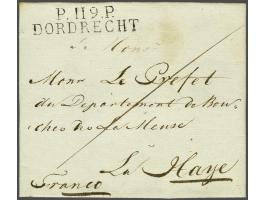 P.119.P.
DORDRECHT
Le Mons
Monsr Le Préfet
du Departement de Bou-
ches de la Meuse
La Haye
Franco